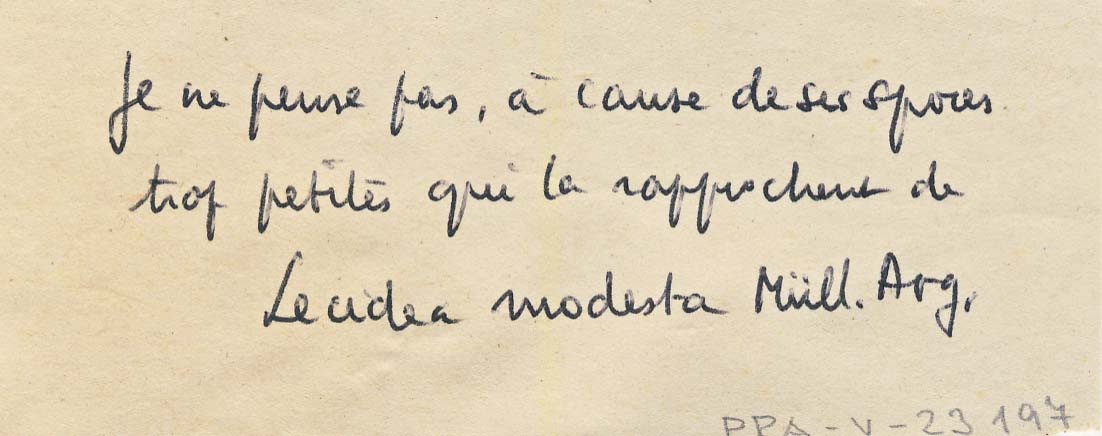 Je ne pense pas, à cause de ses spores
trop petites qui la rapprochent de
Lecidea modesta Müll. Arg.
PPA-V-23 197